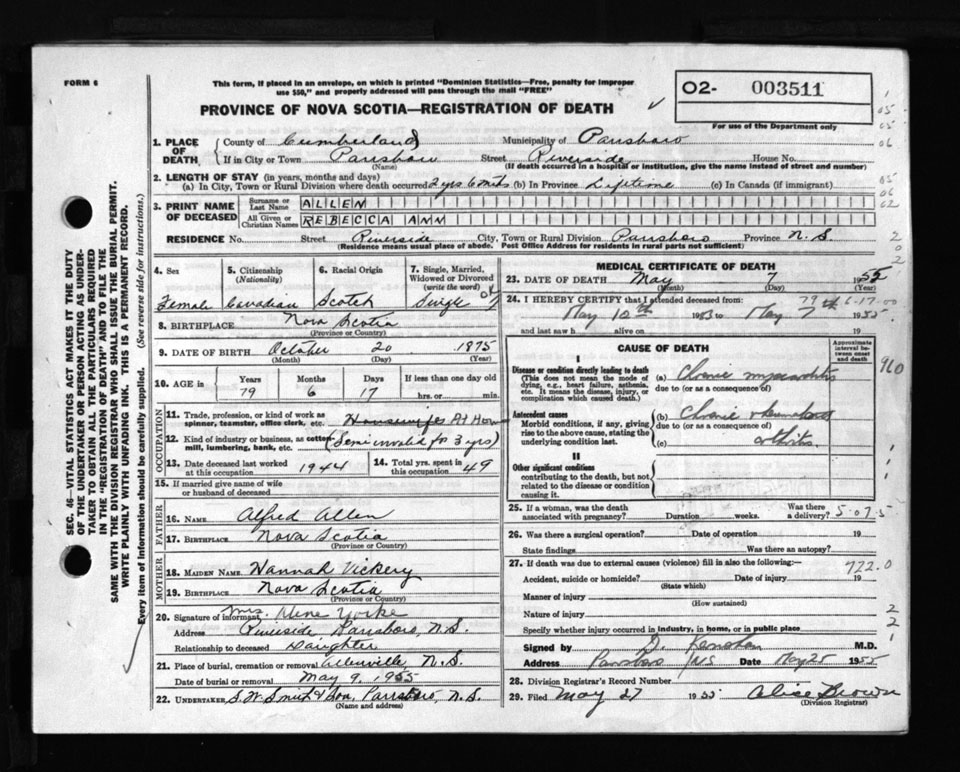 FORM 6
This form, if placed in an envelope, on which is printed "Dominion Statistics—Free, penalty for improper
use $50," and properly addressed will pass through the mail "FREE"
PROVINCE OF NOVA SCOTIA—REGISTRATION OF DEATH
O2- 003511
For use of the Department only
SEC. 46—VITAL STATISTICS ACT MAKES IT THE DUTY
OF THE UNDERTAKER OR PERSON ACTING AS UNDER-
TAKER TO OBTAIN ALL THE PARTICULARS REQUIRED
IN THE "REGISTRATION OF DEATH" AND TO FILE THE
SAME WITH THE DIVISION REGISTRAR WHO SHALL ISSUE THE BURIAL PERMIT.
WRITE PLAINLY WITH UNFADING INK. THIS IS A PERMANENT RECORD.
Every item of Information should be carefully supplied. (See reverse side for instructions.)
1. PLACE OF DEATH County of Cumberland Municipality of Parrsboro
If in City or Town Parrsboro Street Riverside House No.
(Name) (If death occurred in a hospital or institution, give the name instead of street and number)
2. LENGTH OF STAY (in years, months and days)
(a) In City, Town or Rural Division where death occurred 2 yrs 6 mths (b) In Province Lifetime (c) In Canada (if immigrant)
3. PRINT NAME OF DECEASED Surname or Last Name ALLEN
All Given or Christian Names REBECCA ANN
RESIDENCE No. Street Riverside City, Town or Rural Division Parrsboro Province N.S.
(Residence means usual place of abode. Post Office Address for residents in rural parts not sufficient)
4. Sex Female
5. Citizenship (Nationality) Canadian
6. Racial Origin Scotch
7. Single, Married, Widowed or Divorced (write the word) Single
8. BIRTHPLACE Nova Scotia
(Province or Country)
9. DATE OF BIRTH October 20 1875
(Month) (Day) (Year)
10. AGE in Years Months Days If less than one day old
79 6 17 hrs. or min.
OCCUPATION
11. Trade, profession, or kind of work as
spinner, teamster, office clerk, etc. Housewife At Home
12. Kind of industry or business, as cotton
mill, lumbering, bank, etc. (Semi invalid for 3 yrs)
13. Date deceased last worked
at this occupation 1944
14. Total yrs. spent in
this occupation 49
15. If married give name of wife
or husband of deceased
FATHER
16. NAME Alfred Allen
17. BIRTHPLACE Nova Scotia
(Province or Country)
MOTHER
18. MAIDEN NAME Hannah Vickery
19. BIRTHPLACE Nova Scotia
(Province or Country)
20. Signature of informant Mrs. Yorke
Address Riverside, Parrsboro, N.S.
Relationship to deceased Daughter
21. Place of burial, cremation or removal Allenville, N.S.
Date of burial or removal May 9, 1955
22. UNDERTAKER S.W. Smith & Son, Parrsboro, N.S.
(Name and address)
MEDICAL CERTIFICATE OF DEATH
23. DATE OF DEATH May 7 1955
(Month) (Day) (Year)
24. I HEREBY CERTIFY that I attended deceased from: 79 6-17-00
May 10th 1953 to May 7 1955
and last saw h alive on 19
CAUSE OF DEATH
Approximate interval between onset and death
I
Disease or condition directly leading to death
(This does not mean the mode of
dying, e.g., heart failure, asthenia,
etc. It means the disease, injury, or
complication which caused death.)
(a) Chronic myocarditis
due to (or as a consequence of)
Antecedent causes
Morbid conditions, if any, giving
rise to the above cause, stating the
underlying condition last.
(b) Chronic rheumatoid
due to (or as a consequence of)
(c) arthritis
II
Other significant conditions
contributing to the death, but not
related to the disease or condition
causing it.
25. If a woman, was the death
associated with pregnancy? Duration weeks. Was there
a delivery? 5-07-5
26. Was there a surgical operation? Date of operation 19
State findings Was there an autopsy?
27. If death was due to external causes (violence) fill in also the following:— 722.0
Accident, suicide or homicide? Date of injury 19
(State which)
Manner of injury
(How sustained)
Nature of injury
Specify whether injury occurred in industry, in home, or in public place
Signed by D. M.D.
Address Parrsboro N.S. Date May 25 1955
28. Division Registrar's Record Number
29. Filed May 27 1955 Alice Brown
(Division Registrar)